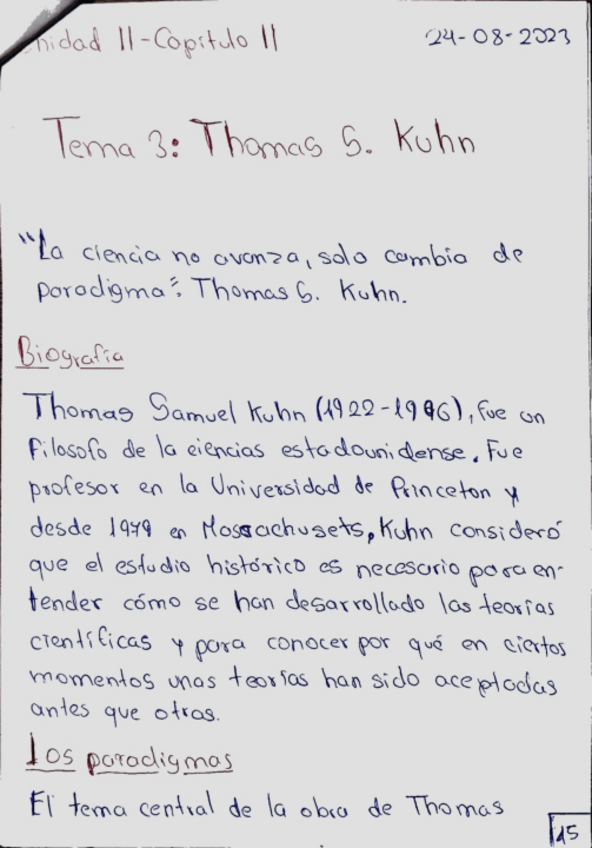 Unidad II-Capítulo II
24-08-2023
Tema 3: Thomas S. Kuhn
"La ciencia no avanza, solo cambia de
paradigma". Thomas S. Kuhn.
Biografía
Thomas Samuel Kuhn (1922-1996), fue un
filosofo de la ciencias estadounidense. Fue
profesor en la Universidad de Princeton y
desde 1979 en Massachusets, Kuhn consideró
que el estudio histórico es necesario para en-
tender cómo se han desarrollado las teorías
científicas y para conocer por qué en ciertos
momentos unas teorías han sido aceptadas
antes que otras.
Los paradigmas
El tema central de la obra de Thomas
15